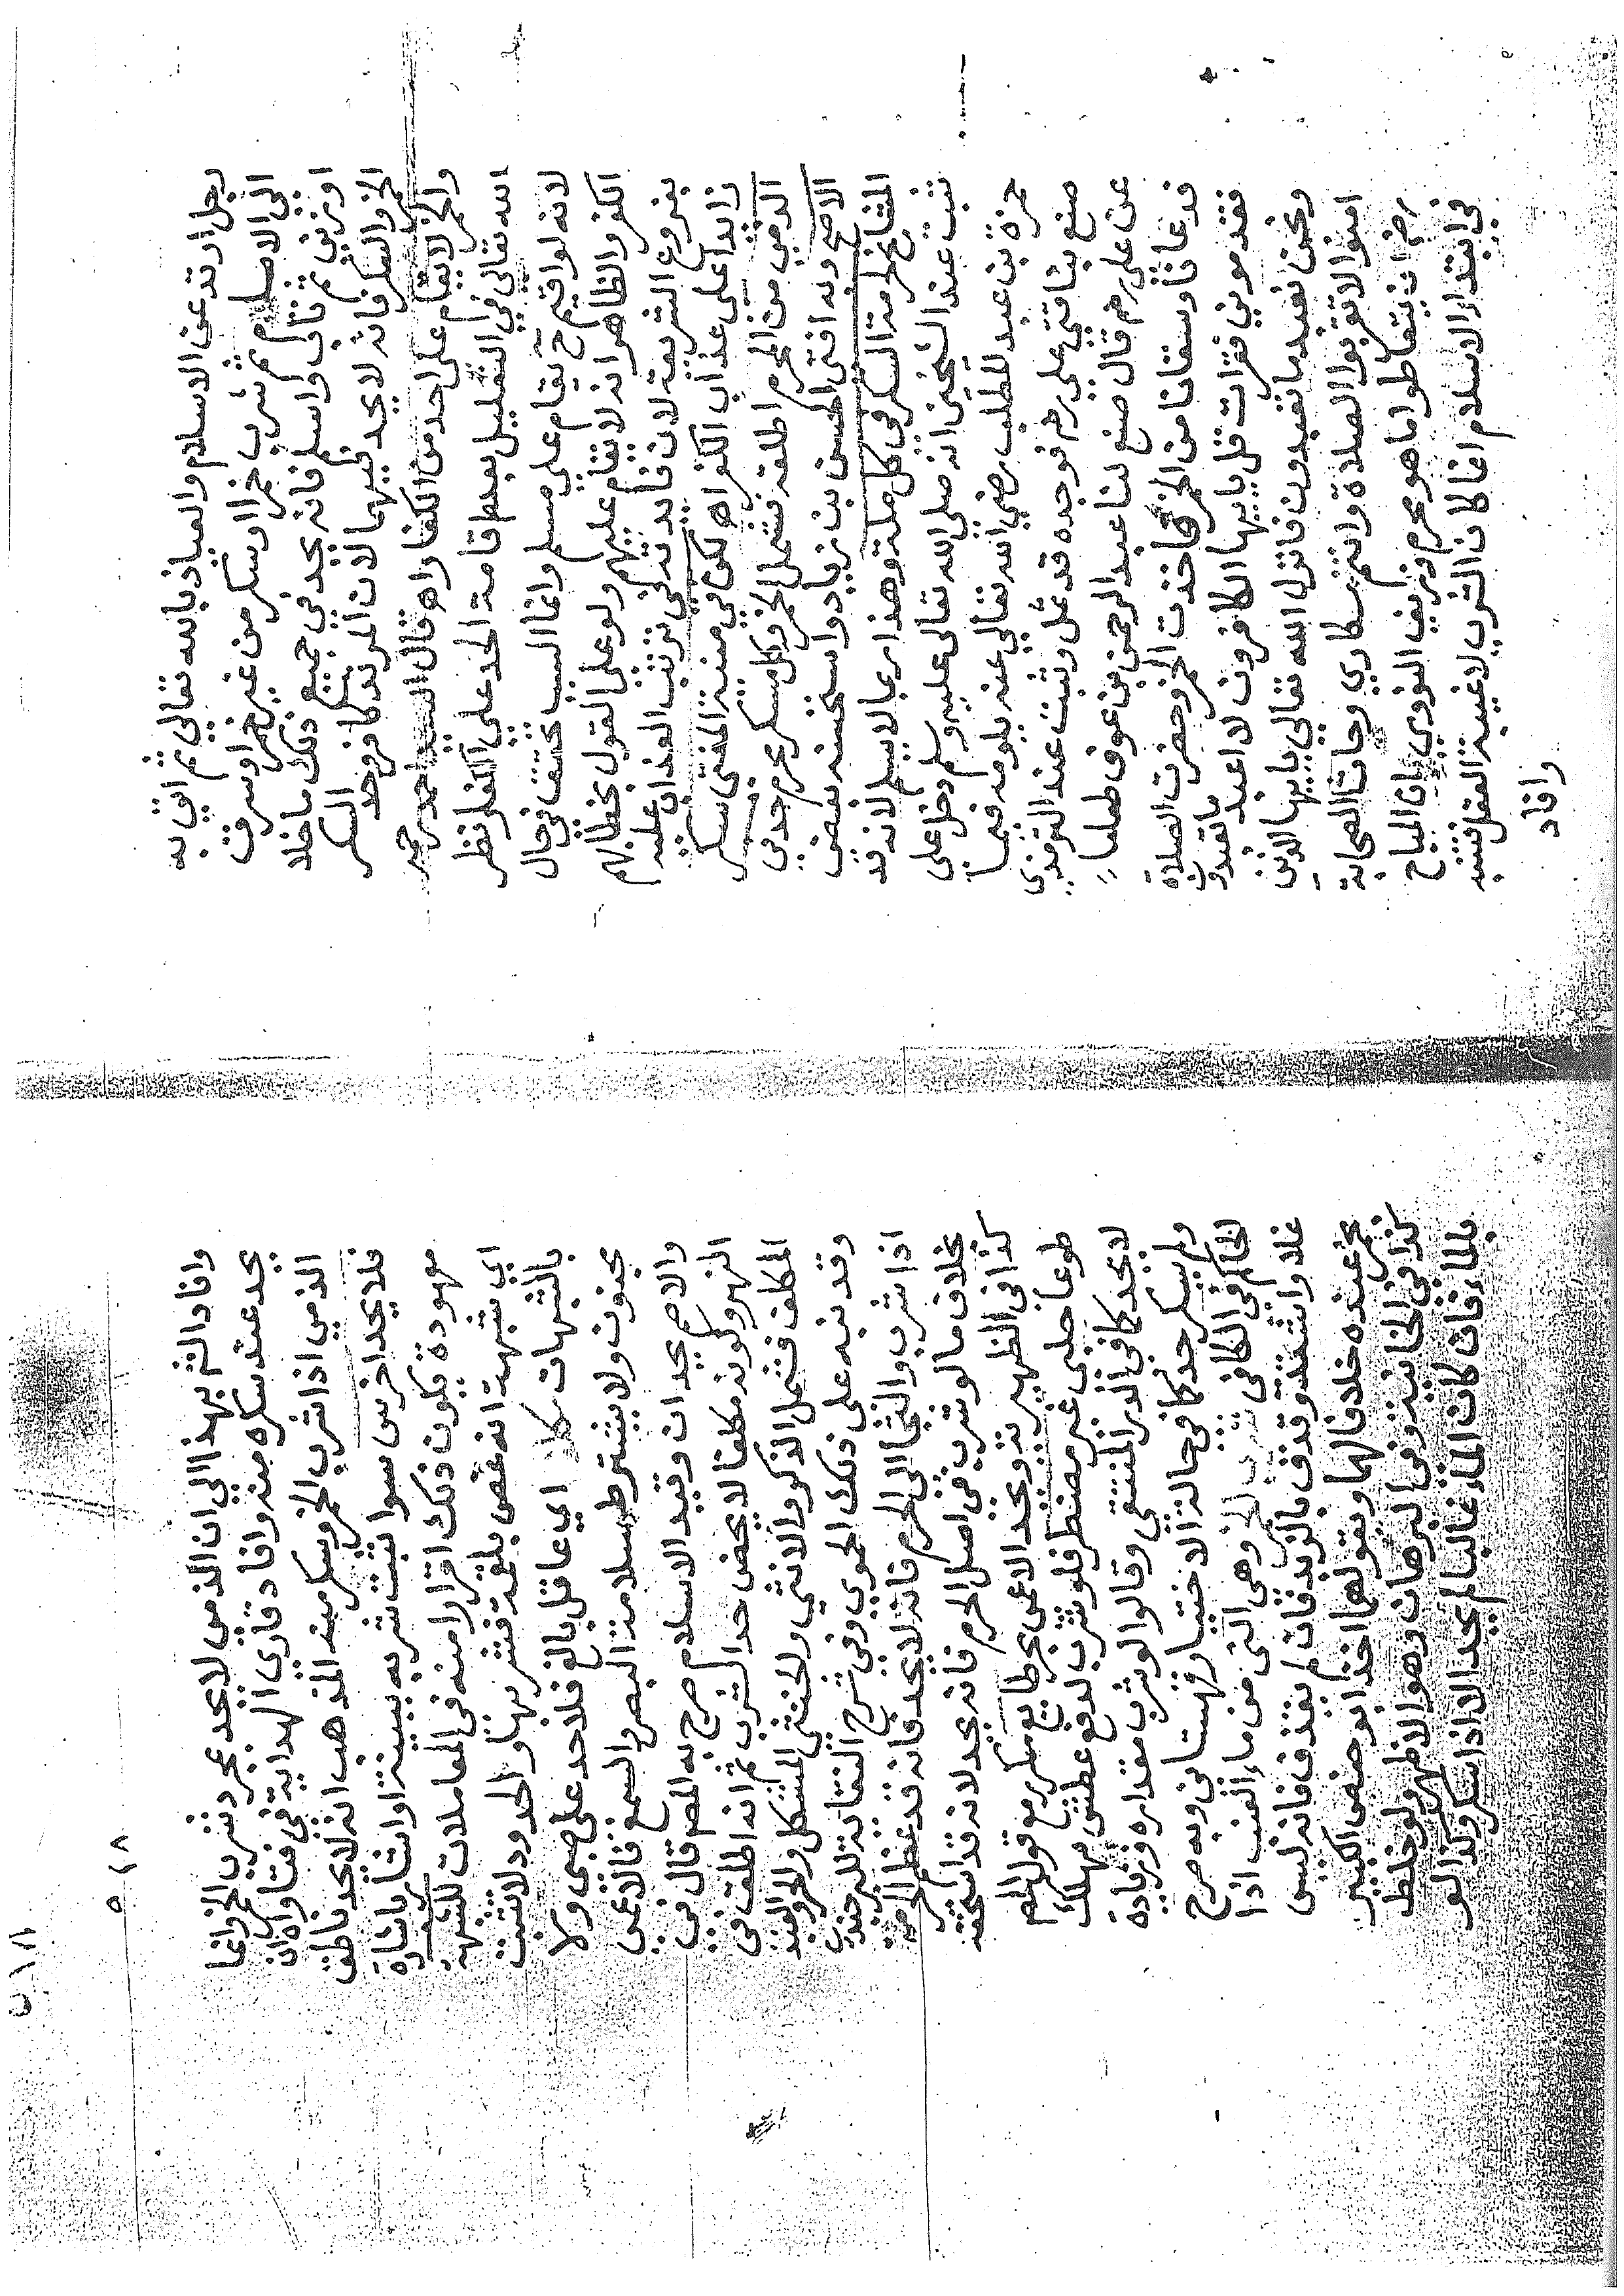 رجل ارتد عن الاسلام والعياذ بالله تعالى ثم اتي به
الى الاسلام ثم شرب خمرا او سكر من غير خمر او سرق
او زنى ثم تاب واسلم فانه يحد في جميع ذلك ما خلا
الخمر والسكر فانه لا يحد فيهما لان المرتد كافر وحد السكر
والخمر لا يقام على احد من الكفار اه قال السيد احمد رحمه
الله تعالى في التعليل بعدم اقامة الحد على الكفار نظر
لانه لو اقيم ح يقام على مسلم وانما السبب تحقق في حال
الكفر والظاهر انه لا يقام عليهم ولو على القول بخطابهم
بفروع الشريعة لان فائدته في ترتب العذاب عليه
زائدا على عذاب الكفر اه لكن في منية المفتى سكر
الذمي من المحرم اطلقه فشمل الخمر وكل مسكر محرم حد في
الاصح وبه افتى الحسن بن زياد واستحسنه بعض
المشايخ لحرمة السكر في كل ملة وهذا ربما لا يسلم لانه قد
ثبت عند الشيخين انه صلى الله تعالى عليه وسلم دخل على
حمزة بن عبد المطلب رضي الله تعالى عنه يلومه فيما
صنع بناقتي علي رضه فوجده قد ثمل وثبت عند الترمذي
عن علي رضه قال صنع لنا عبد الرحمن بن عوف طعاما
فدعانا وسقانا من الخمر فاخذت الخمر وحضرت الصلاة
فقدموني فقرات قل يا يها الكافرون لا اعبد ما تعبدون
ونحن نعبد ما تعبدون فانزل الله تعالى يا يها الذين
امنوا لا تقربوا الصلاة وانتم سكارى وحاشا الصحابة
رضه ان يتعاطوا ما هو محرم وزيف النووي بان المباح
في ابتداء الاسلام انما كان الشرب لا غيبة العقل تنبيه
وافاد
وافاد الشر بهذا الى ان الذمي لا يحد بمجرد شرب الخمر وانما
يحد عند سكره منه وافاد قاري الهداية في فتاواه ان
الذمي اذا شرب الخمر وسكر منه المذهب انه لا يحد باطق
فلا يحد اخرس سوا ثبت شربه ببينة او اشار باشارة
معهودة يكون ذلك اقرارا منه في المعاملات للشبهة
اي شبهة انه غص بلقمة فشربها والحدود لا تثبت
بالشبهات مكلف اي عاقل بالغ فلا حد على صبى ولا
مجنون ولا يشترط سلامة البصر والسمع فالاعمى
والاصم يحدان وقيد الاسلام صرح به المص قال في
النهر وكونه مكلفا لا يخص حد الشرب ثم انه اطلق في
المكلف فشمل الذكر والانثى والخنثى المشكل والحر والعبد
وقد نبه على ذلك الحموي وفي شرح النقاية للبرجندي
اذا شرب والتجا الى الحرم فانه لا يحد فانه قد عظم الحرمة
بخلاف ما لو شرب في اصل الحرم فانه يحد لانه قد استخفه
كذا في الظهيرية ويحد الاعمى بحر طايع مكرر مع قوله المص
طوعا حلبي غير مضطر فلو شرب لدفع عطش مهلك
لا يحد كما في الدر المنتقى وقالوا لو شرب مقداره وزيادة
ولم يسكر حد كما في حالة الاختيار قهستاني وبه صرح
الحاكم في الكافي شرب الخمر وهى التي من ماء العنب اذا
غلا واشتد وقذف بالزبد فان لم يقذف فانه ليس
بخمر عنده خلافا لهما وبقولهما اخذ ابو حفص الكبير
كذا في الخانية وفي البرهان وهو الاظهر ولو خلط
بالماء فان كان الماء غالبا لم يحد الا اذا سكر وكذا لو